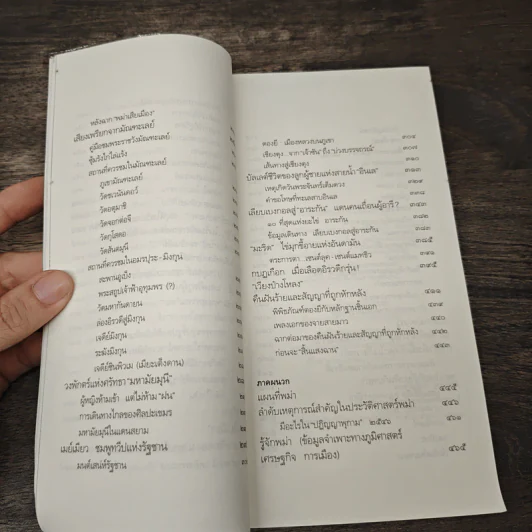 หลังฉาก "พม่าเสียเมือง"
เสียงเพรียกจากมัณฑะเลย์
คู่มือชมพระราชวังมัณฑะเลย์
ซุ้มรังไก่ไล่แร้ง
สถานที่ควรชมในมัณฑะเลย์
ภูเขามัณฑะเลย์
วัดชเวนันดอว์
วัดอตุมาชิ
วัดจอกต่อจี
วัดกุโสดอ
วัดสันดมุนี
สถานที่ควรชมในอมรปุระ - มิงกุน
สะพานอูเบ็ง
พระสถูปเจ้าฟ้าอุทุมพร (?)
วัดมหากันดายน
ล่องอิรวดีสู่มิงกุน
เจดีย์มิงกุน
ระฆังมิงกุน
เจดีย์ชินพิวเม (เมียะเต็งดาน)
วงพักตร์แห่งศรัทธา "มหามัยมุนี"
ผู้หญิงห้ามเข้า แต่ไม่ห้าม "ฝน"
การเดินทางไกลของศิลปะเขมร
มหามัยมุนีในแดนสยาม
เมย์เมียว ชมพูทวีปแห่งรัฐฉาน
มนต์เสน่ห์รัฐฉาน
ตองยี เมืองหลวงบนภูเขา ๓๐๔
เชียงตุง จาก "เจ้าฟ้า" ถึง "บ่วงบรรจถรณ์" ๓๐๗
เส้นทางสู่เชียงตุง ๓๑๐
บัลเลต์ชีวิตของลูกผู้ชายแห่งสายน้ำ "อินเล"
เหตุเกิดวันพระจันทร์เต็มดวง
คำขอโทษที่ทะเลสาบอินเล
เลียบเบงกอลสู่ "อาระกัน" แดนคนเถื่อนผู้อารี?
๑๐ ที่สุดแห่งยะไข่ อาระกัน
ข้อมูลเดินทาง เลียบเบงกอลสู่อาระกัน
"มะริด" ไข่มุกซื้อายแห่งอันดามัน
ตระการตา เซนต์ลุค - เซนต์แมทธิว
กบฏเกือก เมื่อเลือดอิรวดีกรุ่น!
"เวียงบ้างไหลง"
คืนฝันร้ายและสัญญาที่ถูกหักหลัง ๔๑๑
พิพิธภัณฑ์ตองยีกับหลักฐานชิ้นเอก
เพลงเอกของจายสายมาว ๔๔๐
ฉากต่อมาของคืนฝันร้ายและสัญญาที่ถูกหักหลัง
ก่อนจะ "สิ้นแสงฉาน"
ภาคผนวก
แผนที่พม่า ๔๔๕
ลำดับเหตุการณ์สำคัญในประวัติศาสตร์พม่า ๔๔๖
มีอะไรใน "ปฏิญญาพุกาม" ๒๕๔๖ ๔๖๑
รู้จักพม่า (ข้อมูลจำเพาะทางภูมิศาสตร์
เศรษฐกิจ การเมือง) ๔๖๕